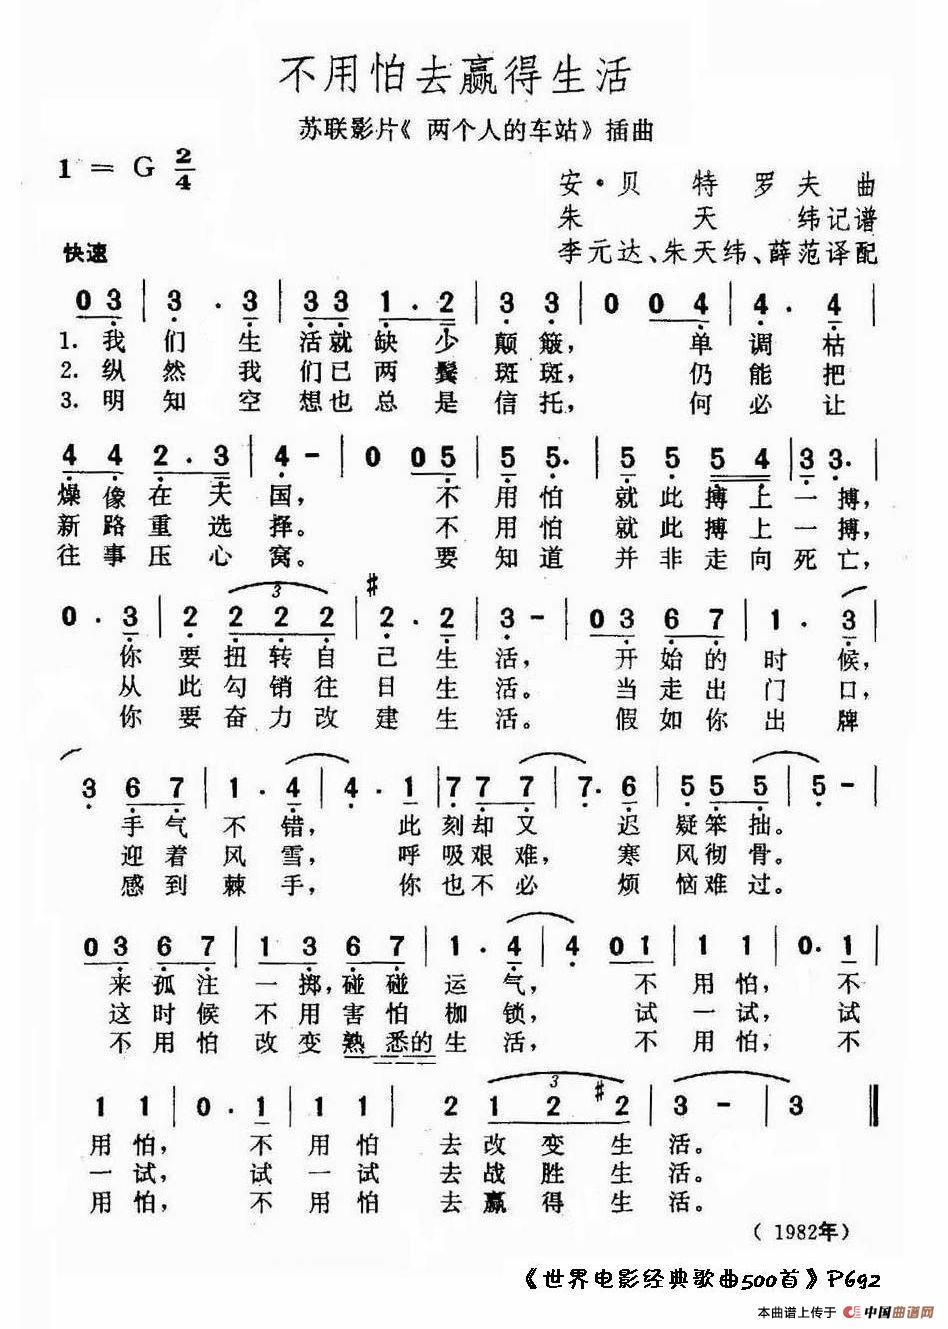 不用怕去赢得生活
苏联影片《 两个人的车站》插曲
1 = G 2/4
安·贝 特 罗 夫 曲
朱 天 纬记谱
快速
李元达、朱天纬、薛范译配
0 3 | 3 . 3 | 3 3 1 . 2 | 3 3 | 0 0 4 | 4 . 4 |
1. 我 们 生 活就缺少 颠簸， 单调枯
2. 纵然我 们已两鬓 斑斑， 仍能把
3. 明知空 想也总是 信托， 何必让
4 4 2 . 3 | 4 - | 0 0 5 | 5 5. | 5 5 5 4 | 3 3. |
燥像在天国， 不用怕 就此搏上一搏，
新路重选择。 不用怕 就此搏上一搏，
往事压心窝。 要知道 并非走向死亡，
0 . 3 | 2 2 2 2 | #2 . 2 | 3 - | 0 3 6 7 | 1 . 3 |
3
你 要扭转自己生活， 开始的时候，
从 此勾销往日生活。 当走出门口，
你 要奋力改建生活。 假如你出牌
3 6 7 | 1 . 4 | 4 . 1 | 7 7 7 | 7 . 6 | 5 5 5 | 5 - |
手气不错， 此刻却又 迟疑笨拙。
迎着风雪， 呼吸艰难， 寒风彻骨。
感到棘手， 你也不必 烦恼难过。
0 3 6 7 | 1 3 6 7 | 1 . 4 | 4 0 1 | 1 1 | 0 . 1 |
来孤注一掷，碰碰运气， 不用怕，不
这时候不用害怕枷锁， 试一试，试
不用怕改变熟悉的生活， 不用怕，不
1 1 | 0 . 1 | 1 1 | 2 1 2 #2 | 3 - | 3 ‖
3
用怕， 不用怕 去改变生活。
一试， 试一试 去战胜生活。
用怕， 不用怕 去赢得生活。
（ 1982年）
《世界电影经典歌曲500首》P692
本曲谱上传于 中国曲谱网